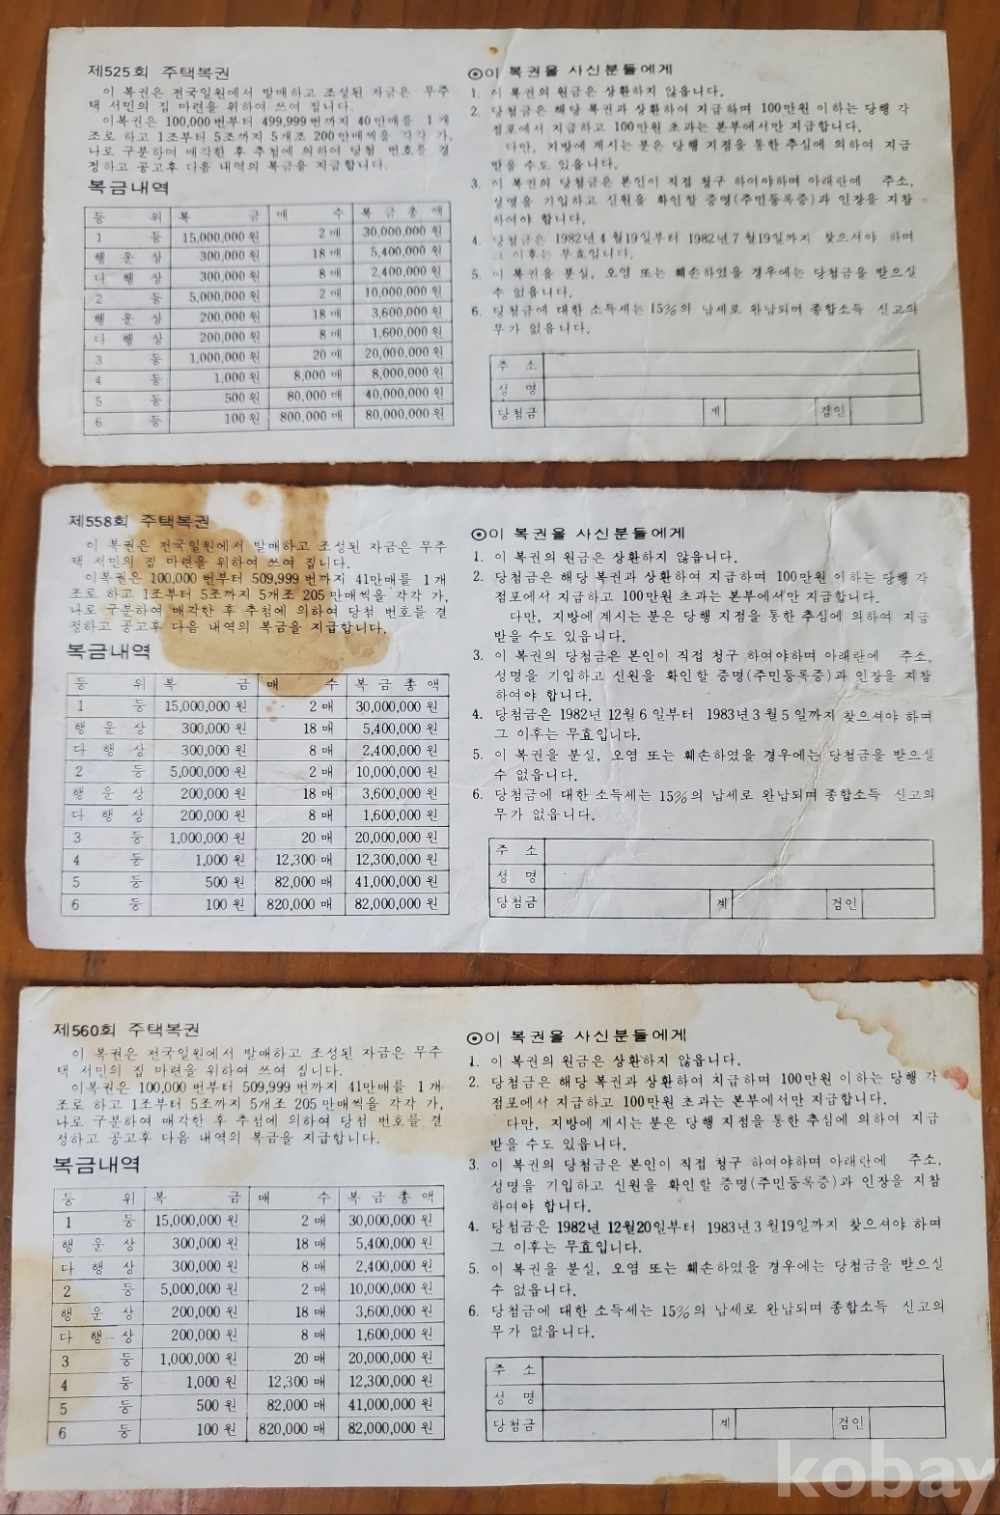 제525회 주택복권
이 복권은 전국일원에서 발매하고 조성된 자금은 무주
택 서민의 집 마련을 위하여 쓰여 집니다.
이복권은 100,000번부터 499,999번까지 40만매를 1개
조로 하고 1조부터 5조까지 5개조 200만매씩을 각각 가,
나로 구분하여 매각한 후 추첨에 의하여 당첨 번호를 결
정하고 공고후 다음 내역의 복금을 지급합니다.
복금내역
등 위 복 금 매 수 복 금 총 액
1 등 15,000,000 원 2 매 30,000,000 원
행 운 상 300,000 원 18 매 5,400,000 원
다 행 상 300,000 원 8 매 2,400,000 원
2 등 5,000,000 원 2 매 10,000,000 원
행 운 상 200,000 원 18 매 3,600,000 원
다 행 상 200,000 원 8 매 1,600,000 원
3 등 1,000,000 원 20 매 20,000,000 원
4 등 1,000 원 8,000 매 8,000,000 원
5 등 500 원 80,000 매 40,000,000 원
6 등 100 원 800,000 매 80,000,000 원
⊙이 복권을 사신분들에게
1. 이 복권의 원금은 상환하지 않읍니다.
2. 당첨금은 해당 복권과 상환하여 지급하며 100만원 이하는 당행 각
점포에서 지급하고 100만원 초과는 본부에서만 지급합니다.
다만, 지방에 계시는 분은 당행 지점을 통한 추심에 의하여 지급
받을 수도 있읍니다.
3. 이 복권의 당첨금은 본인이 직접 청구 하여야하며 아래란에 주소,
성명을 기입하고 신원을 확인할 증명(주민등록증)과 인장을 지참
하여야 합니다.
4. 당첨금은 1982년 4월19일부터 1982년 7월19일까지 찾으셔야 하며
그 이후는 무효입니다.
5. 이 복권을 분실, 오염 또는 훼손하였을 경우에는 당첨금을 받으실
수 없읍니다.
6. 당첨금에 대한 소득세는 15%의 납세로 완납되며 종합소득 신고의
무가 없읍니다.
주 소
성 명
당첨금 계 검인
제558회 주택복권
이 복권은 전국일원에서 발매하고 조성된 자금은 무주
택 서민의 집 마련을 위하여 쓰여 집니다.
이복권은 100,000 번부터 509,999 번까지 41만매를 1개
조로 하고 1조부터 5조까지 5개조 205만매씩을 각각 가,
나로 구분하여 매각한 후 추첨에 의하여 당첨 번호를 결
정하고 공고후 다음 내역의 복금을 지급합니다.
복금내역
등 위 복 금 매 수 복 금 총 액
1 등 15,000,000 원 2 매 30,000,000 원
행 운 상 300,000 원 18 매 5,400,000 원
다 행 상 300,000 원 8 매 2,400,000 원
2 등 5,000,000 원 2 매 10,000,000 원
행 운 상 200,000 원 18 매 3,600,000 원
다 행 상 200,000 원 8 매 1,600,000 원
3 등 1,000,000 원 20 매 20,000,000 원
4 등 1,000 원 12,300 매 12,300,000 원
5 등 500 원 82,000 매 41,000,000 원
6 등 100 원 820,000 매 82,000,000 원
⊙이 복권을 사신분들에게
1. 이 복권의 원금은 상환하지 않읍니다.
2. 당첨금은 해당 복권과 상환하여 지급하며 100만원 이하는 당행 각
점포에서 지급하고 100만원 초과는 본부에서만 지급합니다.
다만, 지방에 계시는 분은 당행 지점을 통한 추심에 의하여 지급
받을 수도 있읍니다.
3. 이 복권의 당첨금은 본인이 직접 청구 하여야하며 아래란에 주소,
성명을 기입하고 신원을 확인할 증명(주민등록증)과 인장을 지참
하여야 합니다.
4. 당첨금은 1982년 12월 6일부터 1983년 3월 5일까지 찾으셔야 하며
그 이후는 무효입니다.
5. 이 복권을 분실, 오염 또는 훼손하였을 경우에는 당첨금을 받으실
수 없읍니다.
6. 당첨금에 대한 소득세는 15%의 납세로 완납되며 종합소득 신고의
무가 없읍니다.
주 소
성 명
당첨금 계 검인
제560회 주택복권
이 복권은 전국일원에서 발매하고 조성된 자금은 무주
택 서민의 집 마련을 위하여 쓰여 집니다.
이복권은 100,000 번부터 509,999 번까지 41만매를 1개
조로 하고 1조부터 5조까지 5개조 205만매씩을 각각 가,
나로 구분하여 매각한 후 추첨에 의하여 당첨 번호를 결
정하고 공고후 다음 내역의 복금을 지급합니다.
복금내역
등 위 복 금 매 수 복 금 총 액
1 등 15,000,000 원 2 매 30,000,000 원
행 운 상 300,000 원 18 매 5,400,000 원
다 행 상 300,000 원 8 매 2,400,000 원
2 등 5,000,000 원 2 매 10,000,000 원
행 운 상 200,000 원 18 매 3,600,000 원
다 행 상 200,000 원 8 매 1,600,000 원
3 등 1,000,000 원 20 매 20,000,000 원
4 등 1,000 원 12,300 매 12,300,000 원
5 등 500 원 82,000 매 41,000,000 원
6 등 100 원 820,000 매 82,000,000 원
⊙이 복권을 사신분들에게
1. 이 복권의 원금은 상환하지 않읍니다.
2. 당첨금은 해당 복권과 상환하여 치급하며 100만원 이하는 당행 각
점포에서 지급하고 100만원 초과는 본부에서만 지급합니다.
다만, 지방에 계시는 분은 당행 지점을 통한 추심에 의하여 지급
받을 수도 있읍니다.
3. 이 복권의 당첨금은 본인이 직접 청구 하여야하며 아래란에 주소,
성명을 기입하고 신원을 확인할 증명(주민등록증)과 인장을 지참
하여야 합니다.
4. 당첨금은 1982년 12월20일부터 1983년 3월19일까지 찾으셔야 하며
그 이후는 무효입니다.
5. 이 복권을 분실, 오염 또는 훼손하였을 경우에는 당첨금을 받으실
수 없읍니다.
6. 당첨금에 대한 소득세는 15%의 납세로 완납되며 종합소득 신고의
무가 없읍니다.
주 소
성 명
당첨금 계 검인
kobay